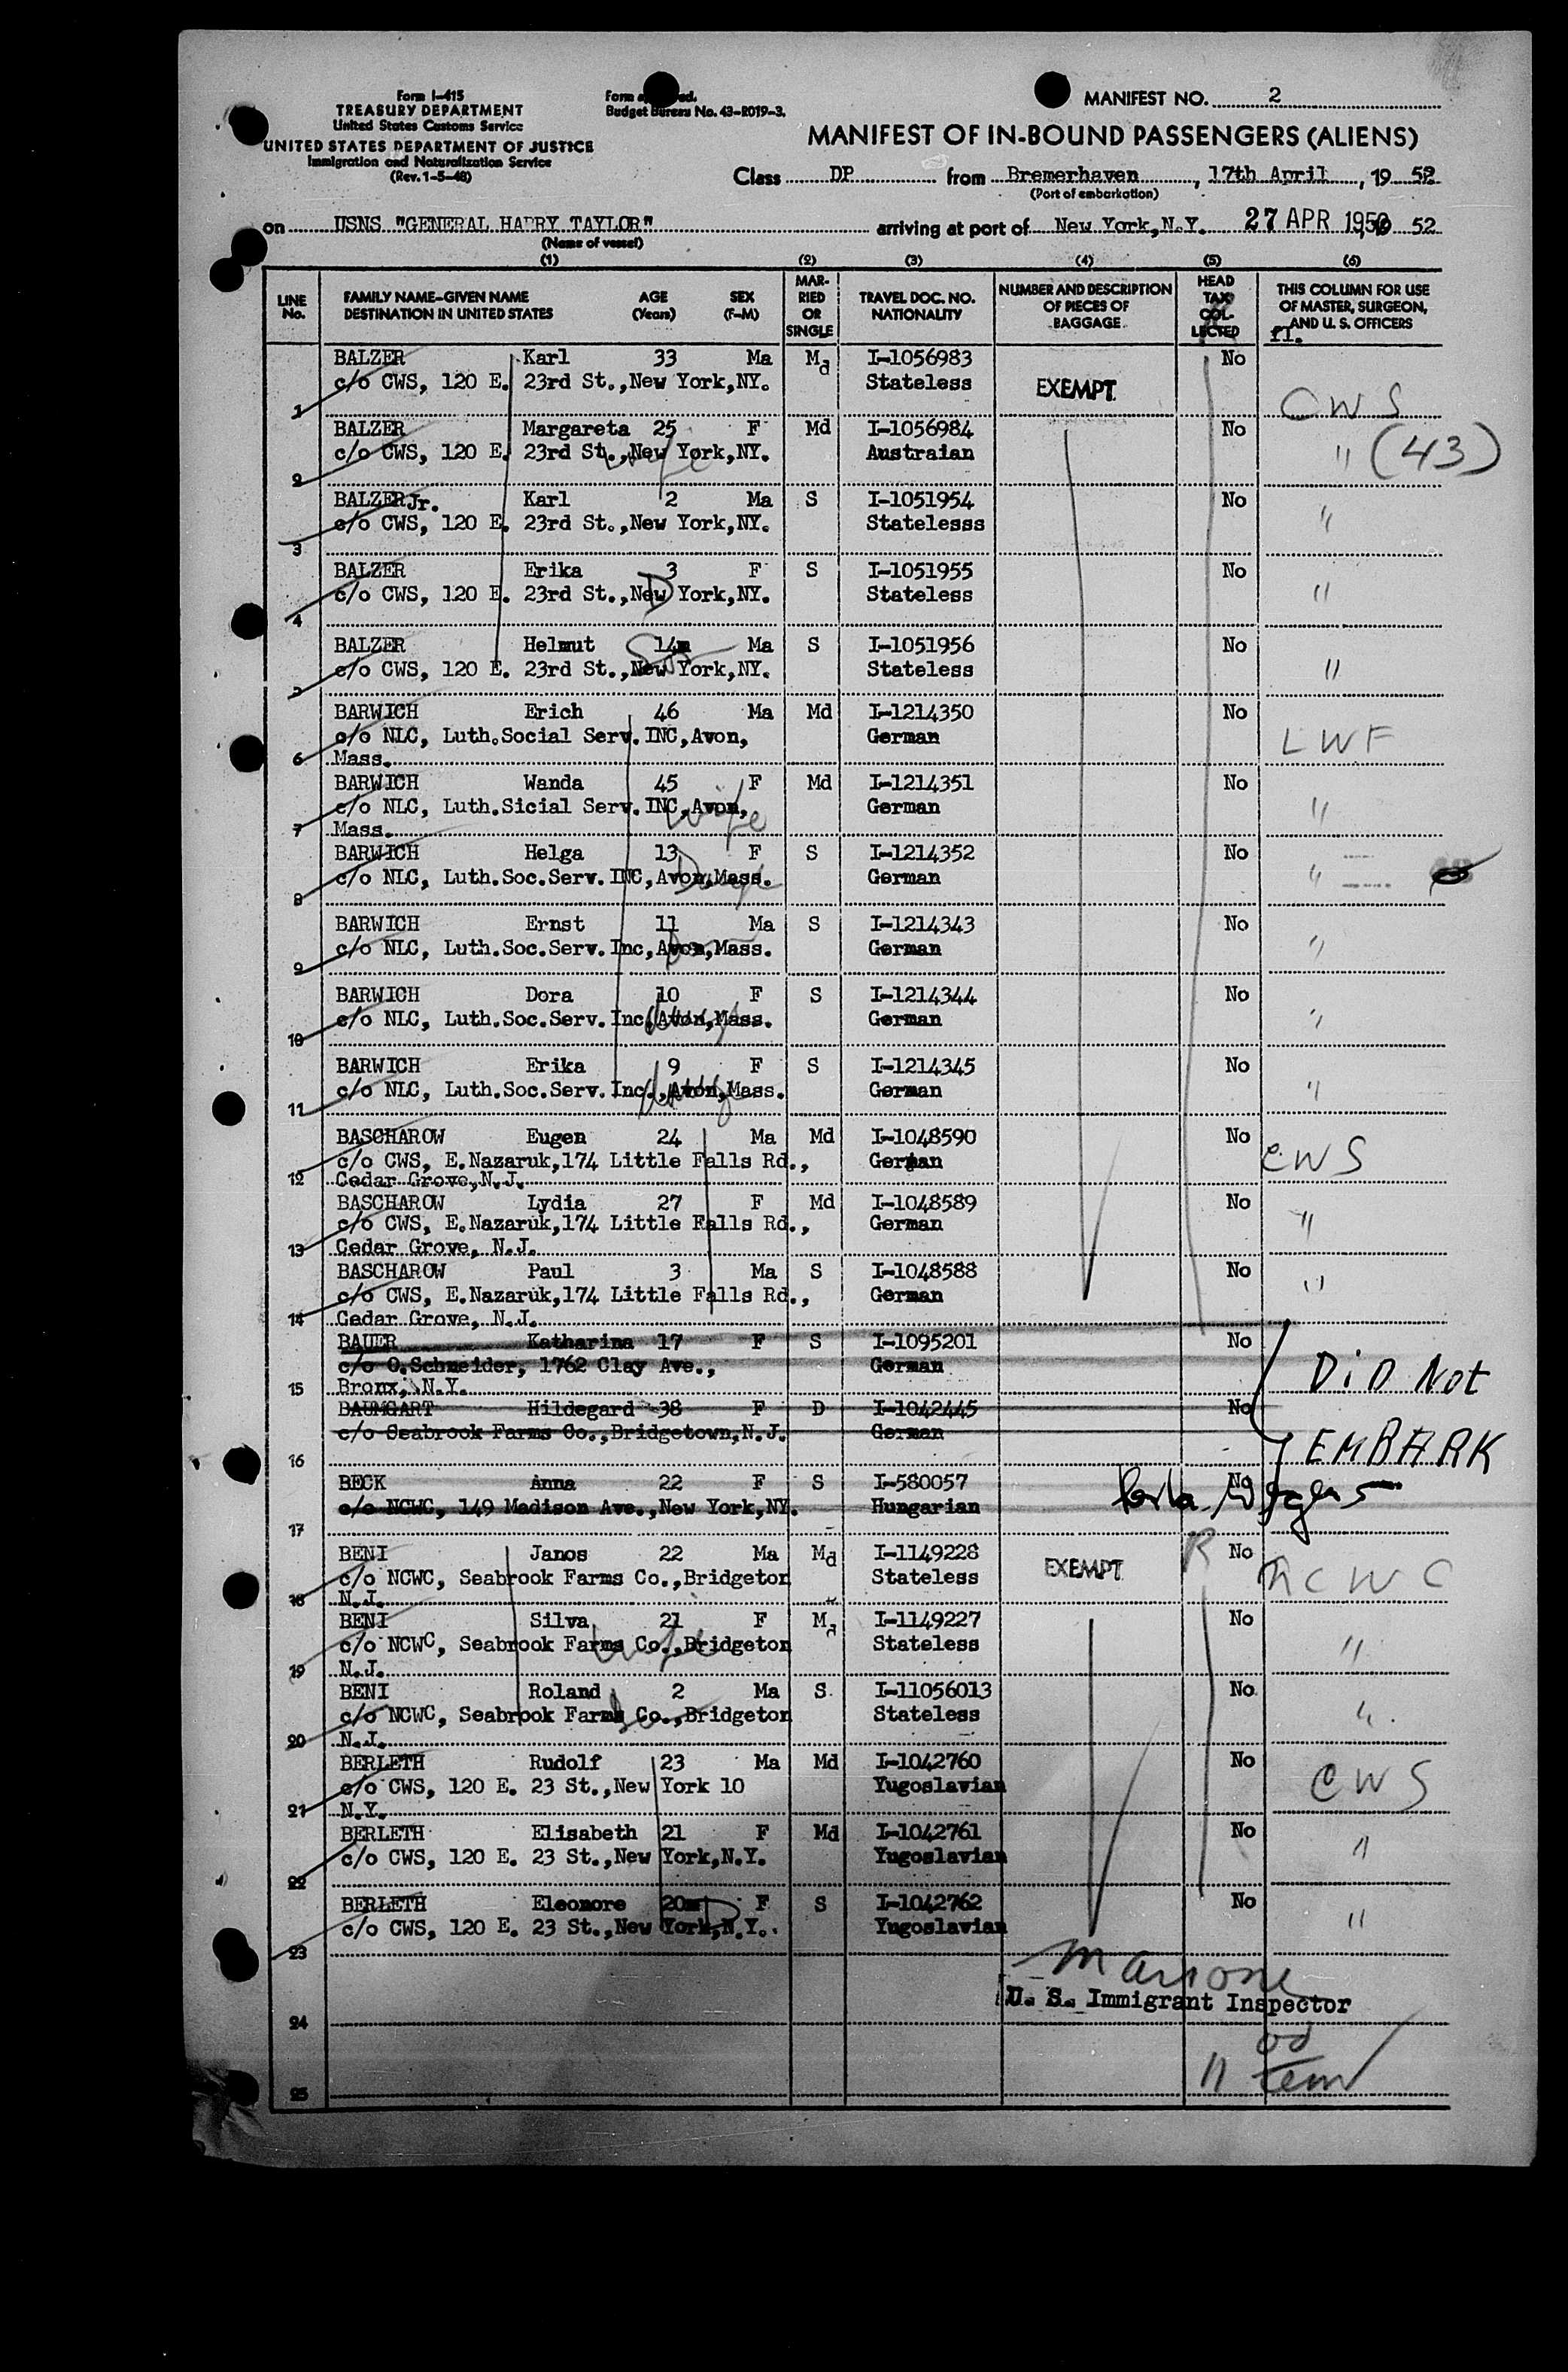 Form I-415
TREASURY DEPARTMENT
United States Customs Service
UNITED STATES DEPARTMENT OF JUSTICE
Immigration and Naturalization Service
(Rev. 1-5-48)
Budget Bureau No. 43-R019-3.
MANIFEST NO. 2
MANIFEST OF IN-BOUND PASSENGERS (ALIENS)
Class DP from Bremerhaven, 17th April, 19 52
(Port of embarkation)
on USNS "GENERAL HARRY TAYLOR" arriving at port of New York,N.Y. 27 APR 1950 52
(Name of vessel)
(1) (2) (3) (4) (5) (6)
LINE No. FAMILY NAME-GIVEN NAME DESTINATION IN UNITED STATES AGE (Years) SEX (F-M) MARRIED OR SINGLE TRAVEL DOC. NO. NATIONALITY NUMBER AND DESCRIPTION OF PIECES OF BAGGAGE HEAD TAX COLLECTED THIS COLUMN FOR USE OF MASTER, SURGEON, AND U. S. OFFICERS
BALZER Karl 33 Ma Md I-1056983 No
c/o CWS, 120 E. 23rd St.,New York,NY. Stateless EXEMPT
1 CWS
BALZER Margareta 25 F Md I-1056984 No
c/o CWS, 120 E. 23rd St.,New York,NY. Austraian " (43)
2 wife
BALZER Jr. Karl 2 Ma S I-1051954 No
c/o CWS, 120 E. 23rd St.,New York,NY. Statelesss "
3
BALZER Erika 3 F S I-1051955 No
c/o CWS, 120 E. 23rd St.,New York,NY. Stateless "
4 D
BALZER Helmut 14m Ma S I-1051956 No
c/o CWS, 120 E. 23rd St.,New York,NY. Stateless "
5
BARWICH Erich 46 Ma Md I-1214350 No
c/o NLC, Luth.Social Serv.INC,Avon, German LWF
6 Mass.
BARWICH Wanda 45 F Md I-1214351 No
c/o NLC, Luth.Sicial Serv.INC,Avon, German "
7 Mass. wife
BARWICH Helga 13 F S I-1214352 No
c/o NLC, Luth.Soc.Serv.INC,Avon,Mass. German "
8
BARWICH Ernst 11 Ma S I-1214343 No
c/o NLC, Luth.Soc.Serv.Inc,Avon,Mass. German "
9
BARWICH Dora 10 F S I-1214344 No
c/o NLC, Luth.Soc.Serv.Inc,Avon,Mass. German "
10
BARWICH Erika 9 F S I-1214345 No
c/o NLC, Luth.Soc.Serv.Inc.,Avon,Mass. German "
11
BASCHAROW Eugen 24 Ma Md I-1048590 No
c/o CWS, E.Nazaruk,174 Little Falls Rd., German CWS
12 Cedar Grove,N.J.
BASCHAROW Lydia 27 F Md I-1048589 No
c/o CWS, E.Nazaruk,174 Little Falls Rd., German "
13 Cedar Grove, N.J.
BASCHAROW Paul 3 Ma S I-1048588 No
c/o CWS, E.Nazaruk,174 Little Falls Rd., German "
14 Cedar Grove, N.J.
BAUER Katharina 17 F S I-1095201 No
c/o O.Schneider, 1762 Clay Ave., German DiD Not
15 Bronx, N.Y.
BAUMGART Hildegard 38 F D I-1042445 No
c/o Seabrook Farms Co.,Bridgetown,N.J. German EMBARK
16
BECK Anna 22 F S I-580057 No
c/o NCWC, 149 Madison Ave.,New York,NY. Hungarian
17
BENI Janos 22 Ma Md I-1149228 R No
c/o NCWC, Seabrook Farms Co.,Bridgeton Stateless EXEMPT NCWC
18 N.J.
BENI Silva 21 F Md I-1149227 No
c/o NCWC, Seabrook Farms Co.,Bridgeton Stateless "
19 N.J. wife
BENI Roland 2 Ma S. I-11056013 No
c/o NCWC, Seabrook Farms Co.,Bridgeton Stateless "
20 N.J.
BERLETH Rudolf 23 Ma Md I-1042760 No
c/o CWS, 120 E. 23 St.,New York 10 Yugoslavian CWS
21 N.Y.
BERLETH Elisabeth 21 F Md I-1042761 No
c/o CWS, 120 E. 23 St.,New York,N.Y. Yugoslavian "
22
BERLETH Eleonore 20m F S I-1042762 No
c/o CWS, 120 E. 23 St.,New York,N.Y. Yugoslavian "
23 D
U. S. Immigrant Inspector
24
25